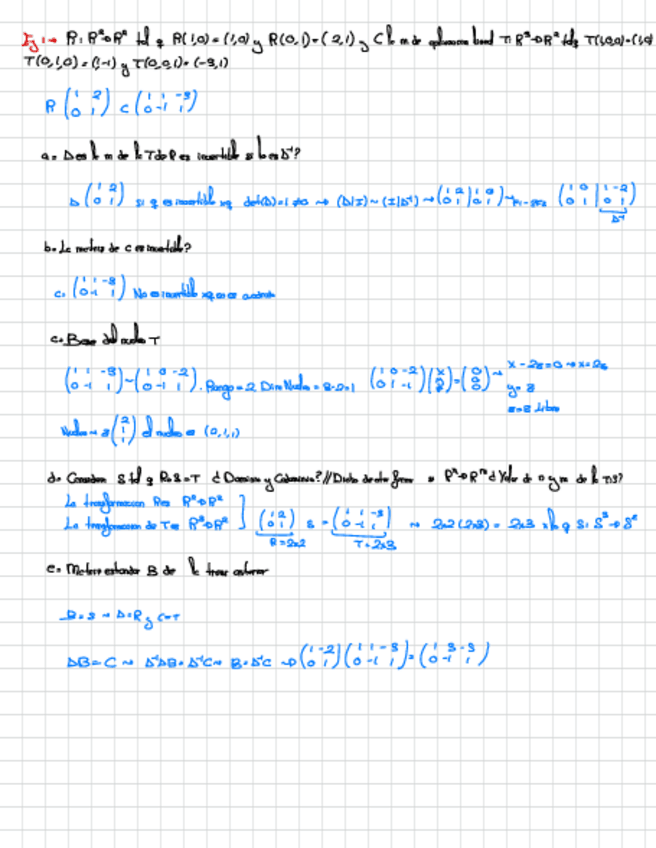 Ej 1→ R: R²→R² tal q R(1,0) = (1,0) y R(0,1) = (2,1) y C la m de aplicacion lineal T: R³→R² talq T(1,0,0)=(1,0)
T(0,1,0) = (1,-1) y T(0,0,1) = (-3,1)
R (1 2 / 0 1) C (1 1 -3 / 0 -1 1)
a = D es la m de la T de R es invertible si lo es D⁻¹?
D (1 2 / 0 1) si q es invertible xq det(D) = 1 ≠ 0 → (D|I) ~ (I|D⁻¹) → (1 2 / 0 1 | 1 0 / 0 1) ~ (1 0 / 0 1 | 1 -2 / 0 1) D⁻¹
b = La matriz de C es invertible?
C = (1 1 -3 / 0 -1 1) No es invertible xq no es cuadrada
c = Base del nucleo T
(1 1 -3 / 0 -1 1) ~ (1 0 -2 / 0 -1 1). Rango = 2 Dim Nucleo = 3-2=1 (1 0 -2 / 0 1 -1) = → x - 2z = 0 → x = 2z
y = z
z = z libre
Nucleo → z (2 / 1 / 1) el nucleo es
d = S tal q R∘S = T ¿ Dominio y Codominio? // Dicho de otra forma R^n→R^m ¿ Valor de n y m de la
La transformacion R es R²→R²
La transformacion de T es R³→R² (1 2 / 0 1) S = (1 1 -3 / 0 -1 1) → 2x2 (2x3) = 2x3 S: S³→S²
R = 2x2 T = 2x3
e = Matriz estandar B de la trans anterior
B = S → D = R y C = T
DB = C → D⁻¹DB = D⁻¹C → B = D⁻¹C → (1 -2 / 0 1) (1 1 -3 / 0 -1 1) =